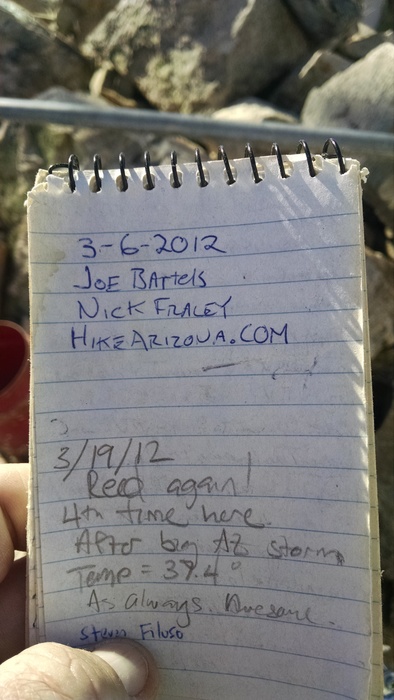 3-6-2012
JOE BARTELS
NICK FRALEY
HIKEARIZONA.COM
3/19/12
again!
4th time here.
After big AZ storm
Temp = 39.4°
As always. Awesome.
Filuso